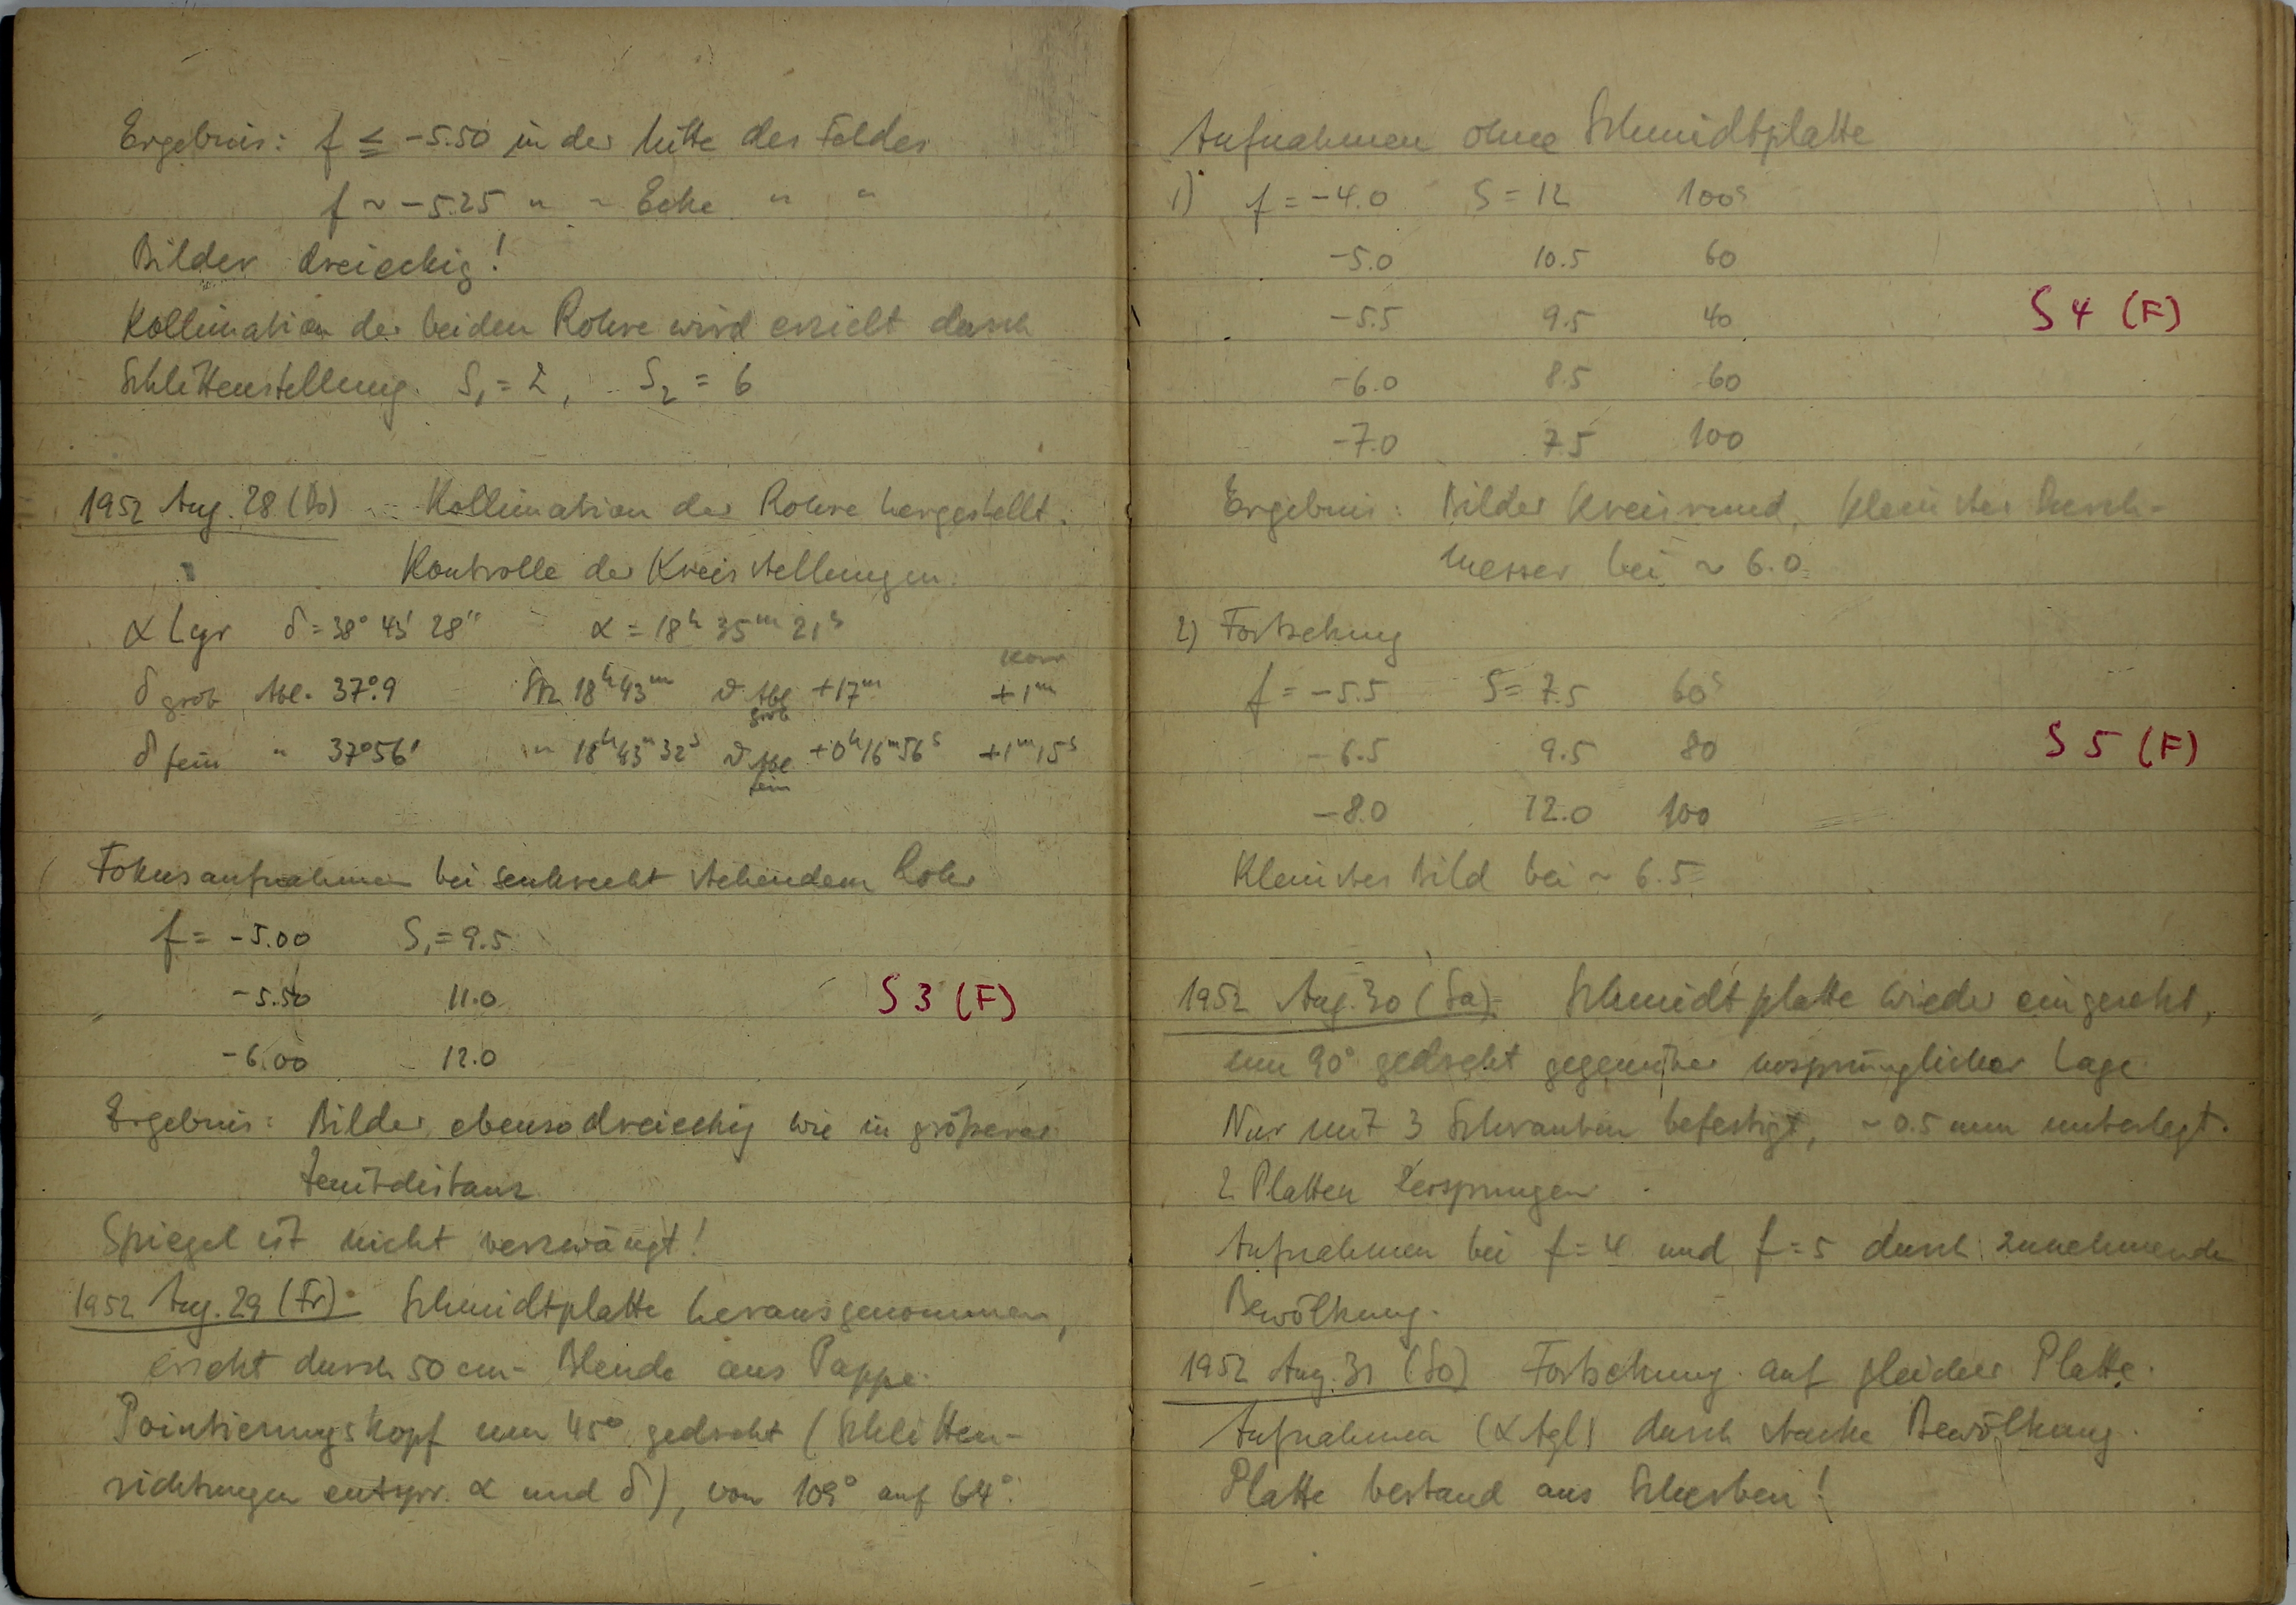 Ergebnis: f ≦ -5.50 in der Mitte des Feldes
f ~ -5.25 " ~ Ecke " "
Bilder dreieckig!
Kollimation der beiden Rohre wird erzielt durch
Schlittenstellung. S₁ = 2, S₂ = 6
1952 Aug. 28 (Do) Kollimation der Rohre hergestellt.
Kontrolle der Kreisstellungen.
α Lyr δ = 38° 45' 28" α = 18ʰ 35ᵐ 21ˢ
Korr
δ grob Abl. 37°.9 Stz 18ʰ43ᵐ ϑ Abl grob +17ᵐ +1ᵐ
δ fein " 37°56' " 18ʰ43ᵐ32ˢ ϑ Abl fein +0ʰ16ᵐ56ˢ +1ᵐ15ˢ
Fokusaufnahmen bei senkrecht stehendem Rohr
f = -5.00 S₁ = 9.5
-5.50 11.0 S 3 (F)
-6.00 12.0
Ergebnis: Bilder ebenso dreieckig wie in grösserer
Zenitdistanz
Spiegel ist nicht verzwängt!
1952 Aug. 29 (Fr): Schmidtplatte herausgenommen,
ersetzt durch 50 cm-Blende aus Pappe.
Pointierungskopf um 45° gedreht (Schlitten-
richtungen entspr. α und δ), von 109° auf 64°.
Aufnahmen ohne Schmidtplatte
1) f = -4.0 S = 12 100ˢ
-5.0 10.5 60
-5.5 9.5 40 S 4 (F)
-6.0 8.5 60
-7.0 7.5 100
Ergebnis: Bilder kreisrund, kleinster Durch-
messer bei ~ 6.0
2) Fortsetzung
f = -5.5 S = 7.5 60ˢ
-6.5 9.5 80 S 5 (F)
-8.0 12.0 100
Kleinstes Bild bei ~ 6.5
1952 Aug. 30 (Sa) Schmidtplatte wieder eingesetzt,
um 90° gedreht gegenüber ursprünglicher Lage
Nur mit 3 Schrauben befestigt, ~ 0.5 mm unterlegt.
2 Platten zersprungen
Aufnahmen bei f = 4 und f = 5 durch zunehmende
Bewölkung.
1952 Aug. 31 (So) Fortsetzung auf gleicher Platte.
Aufnahmen (α Aql) durch starke Bewölkung.
Platte bestand aus Scherben!